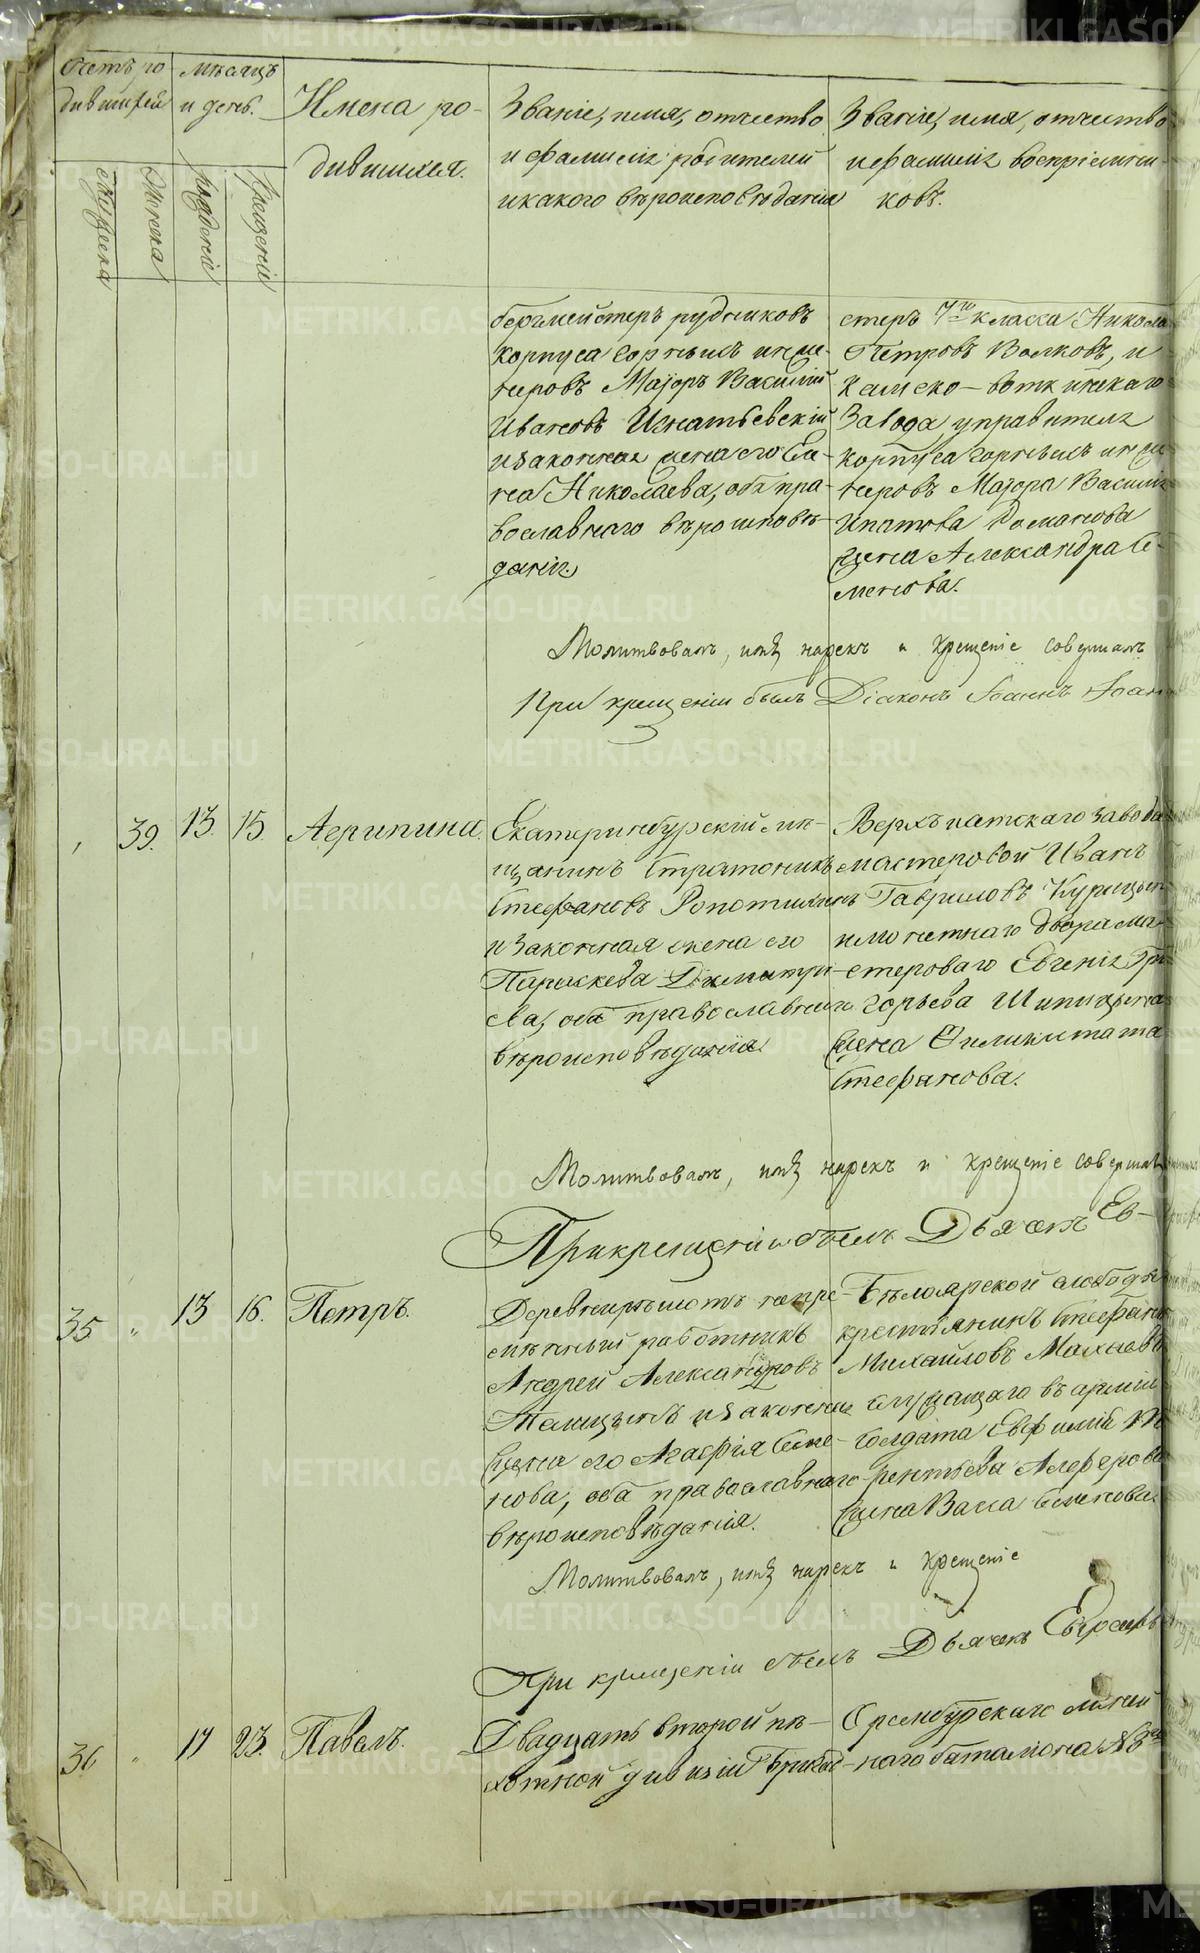 Счетъ ро
дившихся
Мѣсяцъ
и день.
Имена ро-
дившихся.
Званіе, имя, отчество
и фамилія родителей
и какого вѣроисповѣданія
Званіе, имя, отчество
и фамилія воспріемни-
ковъ.
Мужеска
Женска
Рожденія
Крещенія
бергмейстеръ рудниковъ
корпуса Горныхъ инже-
неровъ Маіоръ Василій
Ивановъ Игнатьевскій
и законная жена его Ел-
на Николаева, оба пра-
вославнаго вѣроисповѣ-
данія.
стеръ 7го класса Никола
Петровъ Волковъ, и
Камско-воткинскаго
Завода управителя
корпуса горныхъ инже
неровъ Маіора Василія
Ипатова Романова
жена Александра Се-
менова.
Молитвовалъ, имя нарекъ и крещеніе совершалъ
При крещеніи былъ Діаконъ Іоаннъ Іоан
39.
13.
15.
Агрипина.
Екатеринбургскій мѣ-
щанинъ Стратоникъ
Стефановъ Ропотинъ
и законная жена его
Параскева Димитрі-
ева, оба православнаго
вѣроисповѣданія.
Верхъисетскаго завода
мастеровой Иванъ
Гавриловъ Курицынъ
и монетнаго двора ма-
стероваго Евгенія Гри
горьева Шипицына
жена Филикитата
Стефанова.
Молитвовалъ, имя нарекъ и крещеніе совершалъ
При крещеніи былъ Дьячекъ Ев-
35
"
13
16.
Петръ.
непре-
мѣнный работникъ
Андрей Александровъ
и законная
жена его Агафія Семе-
нова, оба православнаго
вѣроисповѣданія.
Бѣлоярской слободы
крестьянинъ Стефанъ
Михайловъ Махаевъ
служащаго въ арміи
Солдата Евфимія Те
рентьева Алферова
жена Васса Семенова.
Молитвовалъ, имя нарекъ и крещеніе
При крещеніи былъ Дьячекъ Евграфъ
36
"
17
23.
Павелъ.
Двадцать второй пѣ-
хотной дивизіи 1 бригад
Оренбургскаго линей
наго баталіона №3го
METRIKI.GASO-URAL.RU